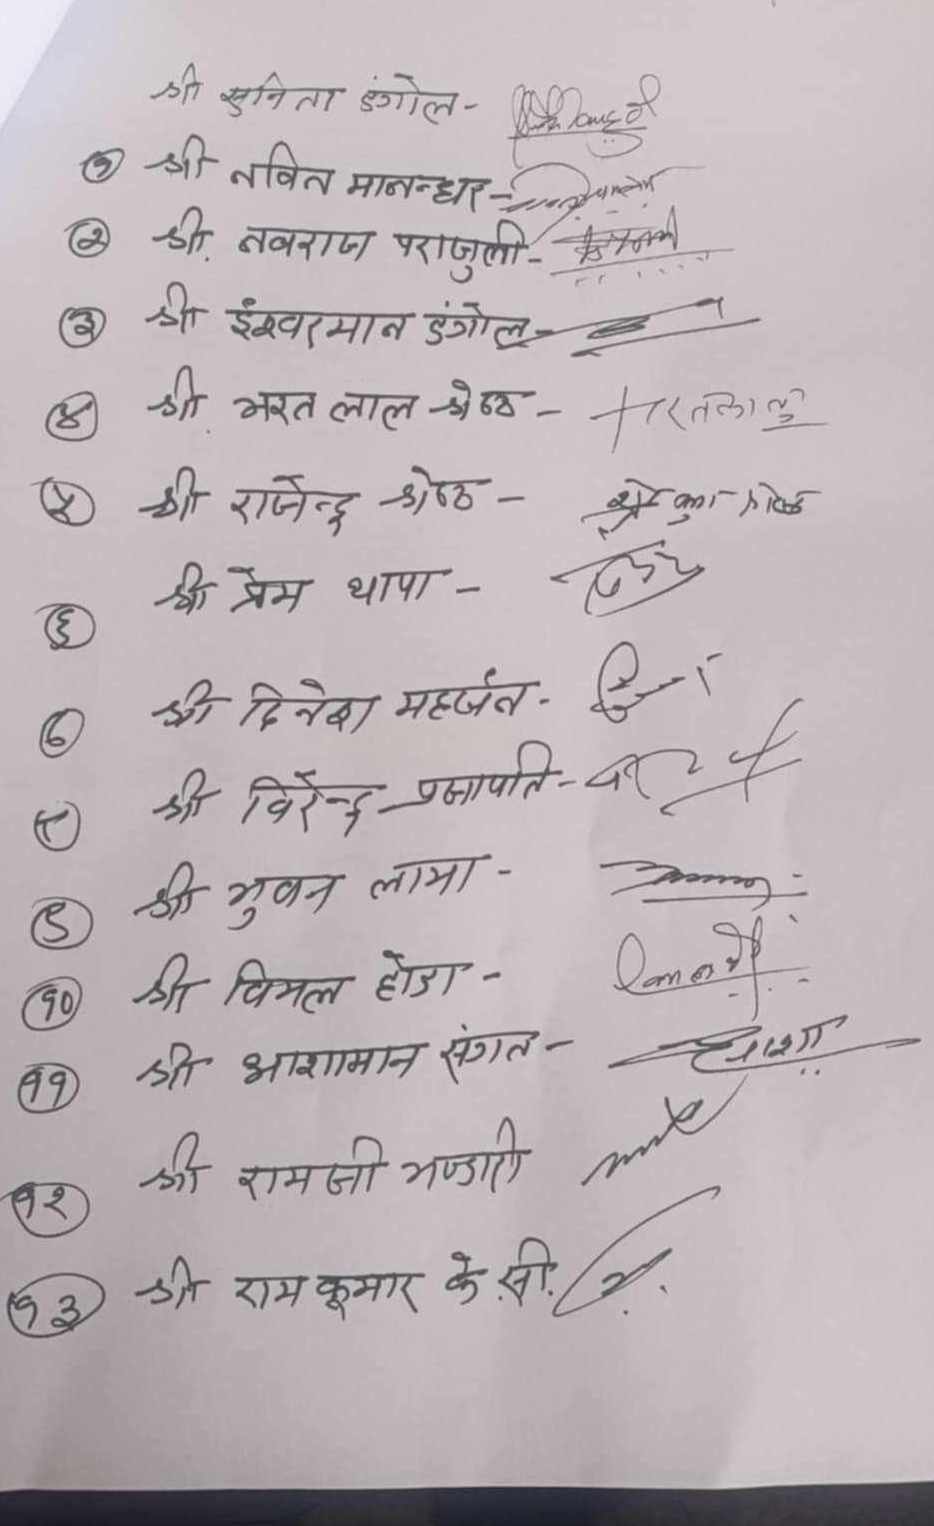 श्री सुनिता डंगोल -
१ श्री नविन मानन्धर -
२ श्री. नवराज पराजुली -
३ श्री ईश्वरमान डंगोल -
४ श्री. भरत लाल श्रेष्ठ - भरतलाल
५ श्री राजेन्द्र श्रेष्ठ -
६ श्री प्रेम थापा -
७ श्री दिनेश महर्जन -
८ श्री विरेन्द्र प्रजापति -
९ श्री भुवन लामा -
१० श्री विमल होडा -
११ श्री आशामान संगत - आशा
१२ श्री रामजी भण्डारी
१३ श्री राम कुमार के.सी.